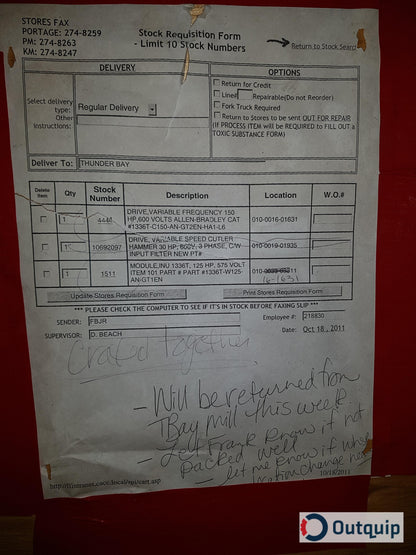 STORES FAX
PORTAGE: 274-8259
PM: 274-8263
KM: 274-8247
Stock Requisition Form
- Limit 10 Stock Numbers
Return to Stock Search
DELIVERY
OPTIONS
Select delivery type:
Regular Delivery
Other Instructions:
Return for Credit
Line# Repairable(Do not Reorder)
Fork Truck Required
Return to Stores to be sent OUT FOR REPAIR
(IF PROCESS ITEM will be REQUIRED to FILL OUT a
TOXIC SUBSTANCE FORM)
Deliver To: THUNDER BAY
Delete Item Qty Stock Number Description Location W.O.#
1 4441 DRIVE,VARIABLE FREQUENCY 150 010-0016-01631
HP,600 VOLTS ALLEN-BRADLEY CAT
#1336T-C150-AN-GT2EN-HA1-L6
1 10692097 DRIVE, VARIABLE SPEED CUTLER 010-0019-01935
HAMMER 30 HP, 600V, 3 PHASE, C/W
INPUT FILTER NEW PT#
1 1511 MODULE,INU 1336T, 125 HP, 575 VOLT 010-
ITEM 101 PART # PART #1336T-W125- 16-1631
AN-GT1EN
Update Stores Requisition Form
Print Stores Requisition Form
*** PLEASE CHECK THE COMPUTER TO SEE IF IT'S IN STOCK BEFORE FAXING SLIP ***
SENDER: FBJR
Employee #: 218830
SUPERVISOR: D. BEACH
Date: Oct 18, 2011
Crated together
- Will be returned from
TBay mill this week
- Let Frank know if not
packed well
- let me know if
location change
10/18/2011
Outquip